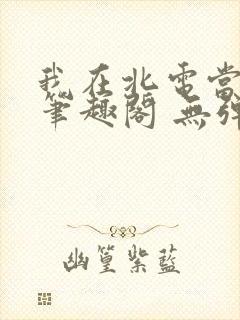 我在北電當
筆趣閣 無彈
幽篁紫藍